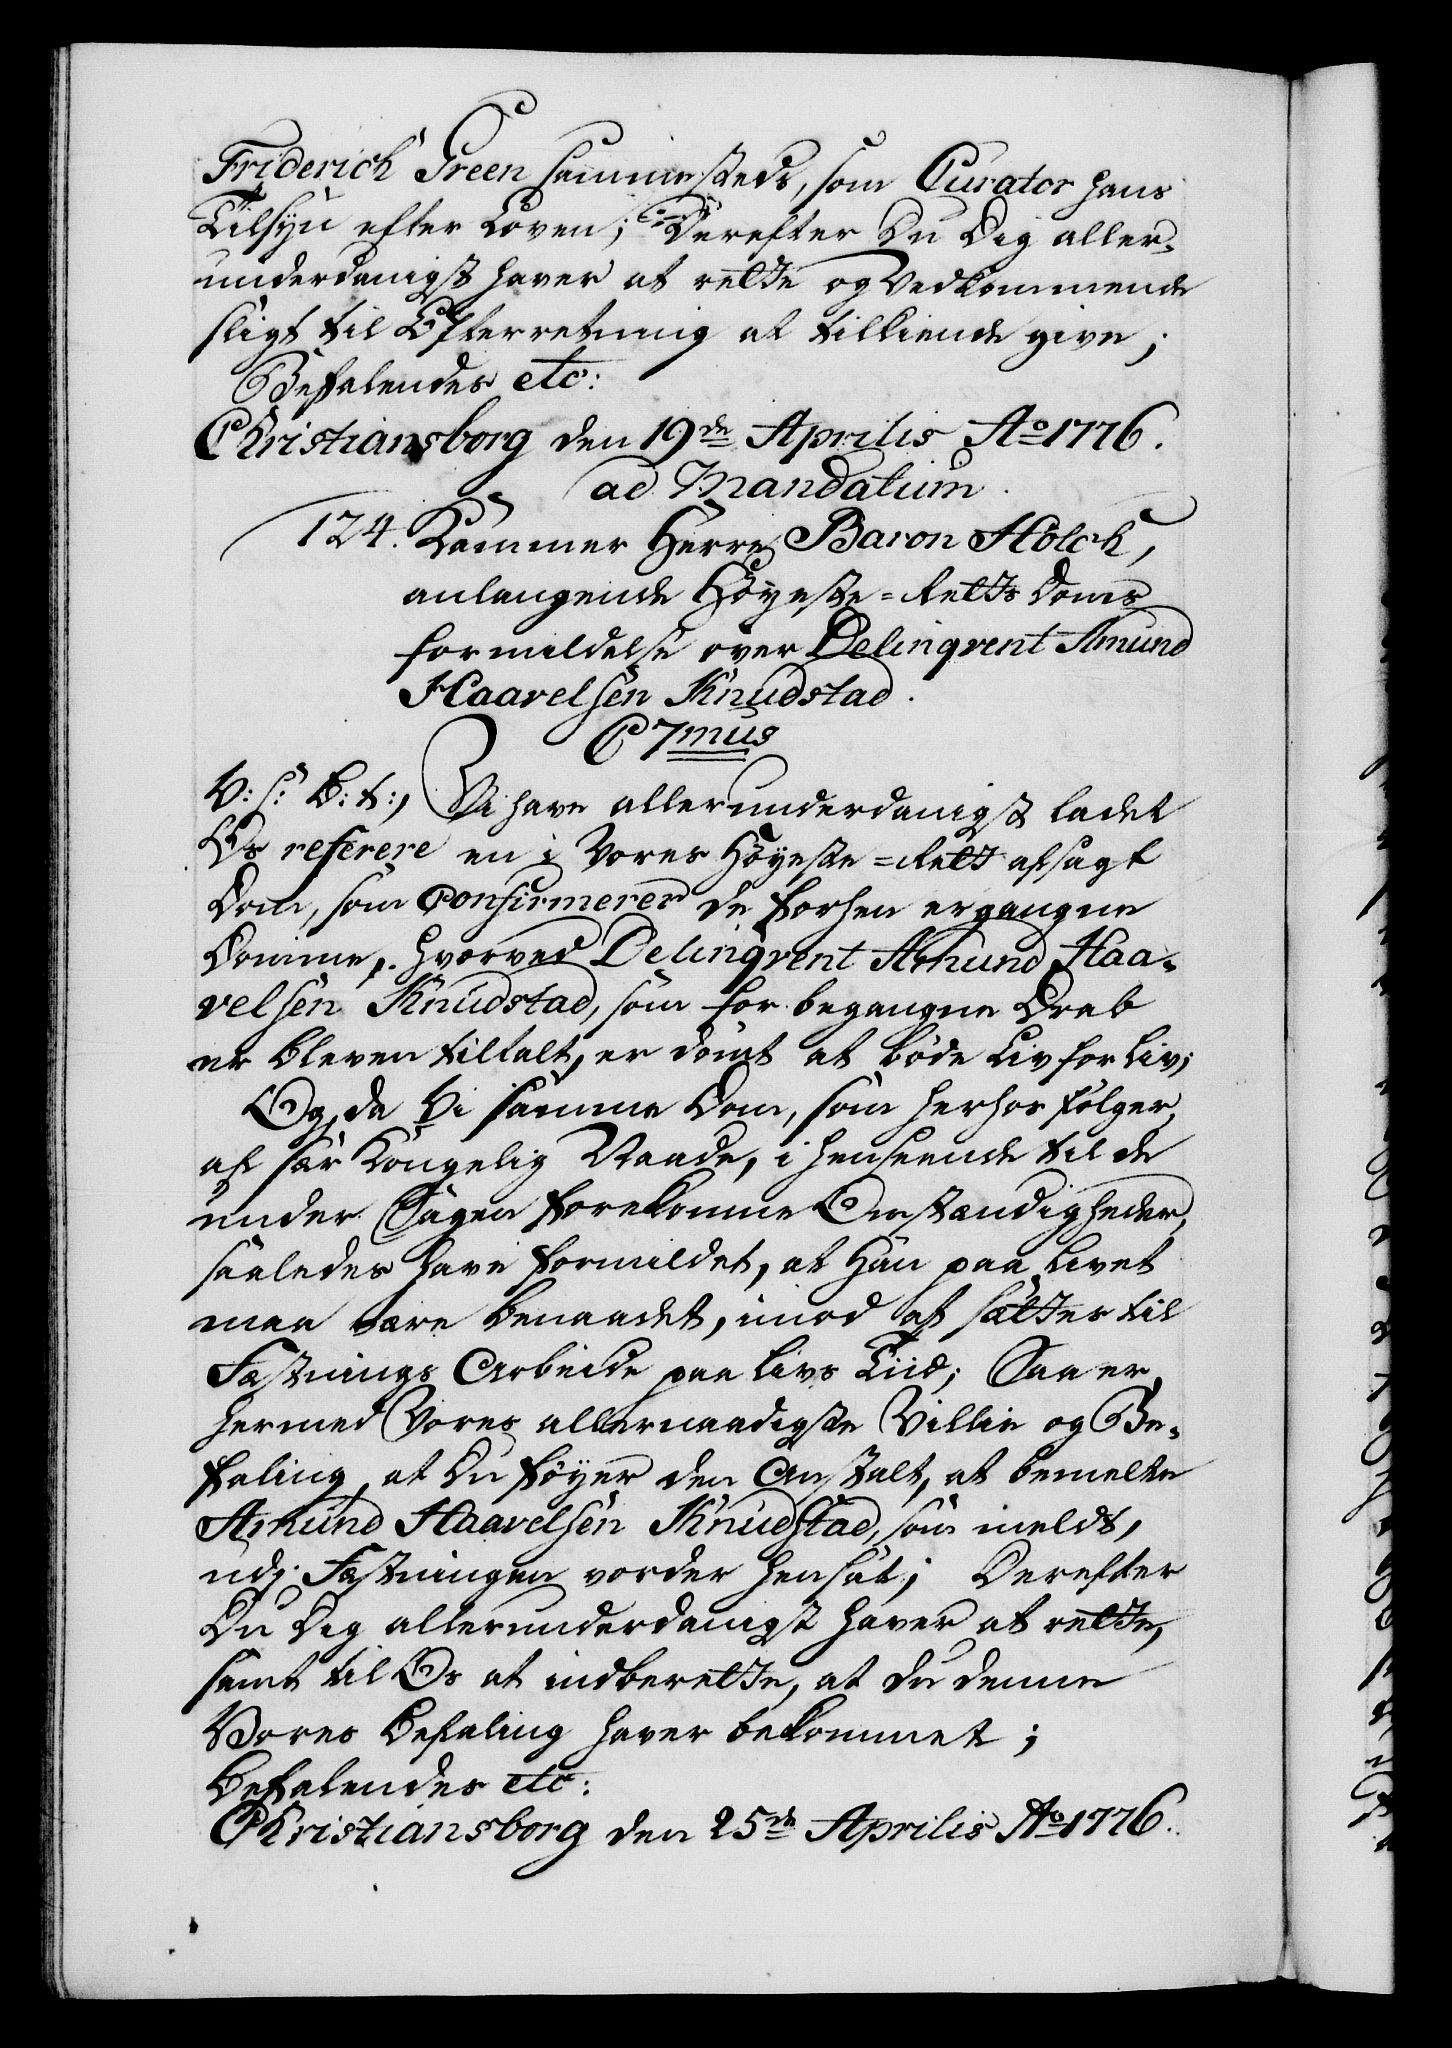 Friderich Green sammesteds, som Curator hans
Tilsyn efter Loven; Derefter Du Dig aller-
underdanigst haver at rette og Vedkommende
sligt til Efterretning at tilkiende give;
Befalendes etc:
Christiansborg den 19de Aprilis Ao 1776.
ad Mandatum
124. Kammer Herre Baron Holck,
anlangende Høyeste-Retts Doms
formildelse over Delinqvent Amund
Haavelsen Knudstad.
C7mus
V: S: B: t:, Vi have allerunderdanigst ladet
Os referere en i Vores Høyeste-Rett afsagt
Dom, som Confirmerer de forhen ergangne
Domme, hvorved Delinqvent Amund Haa-
velsen Knudstad, som for begangne Drab
er bleven tiltalt, er dømt at bøde Liv for Liv;
Og, da Vi samme Dom, som herhos følger,
af sær Kongelig Naade, i henseende til de
under Sagen forekomne Omstændigheder,
saaledes have formildet, at Han paa Livet
maa være benaadet, imod at sættes til
Fæstnings Arbeide paa Livs Tiid; Saa er
hermed Vores allernaadigste Villie og Be-
faling, at Du føyer den Anstalt, at bemelte
Amund Haavelsen Knudstad, som meldt,
udj Fæstningen vorder hensat; Derefter
Du Dig allerunderdanigst haver at rette,
samt til Os at indberette, at Du denne
Vores Befaling haver bekommet;
Befalendes etc:
Christiansborg den 25de Aprilis Ao 1776.